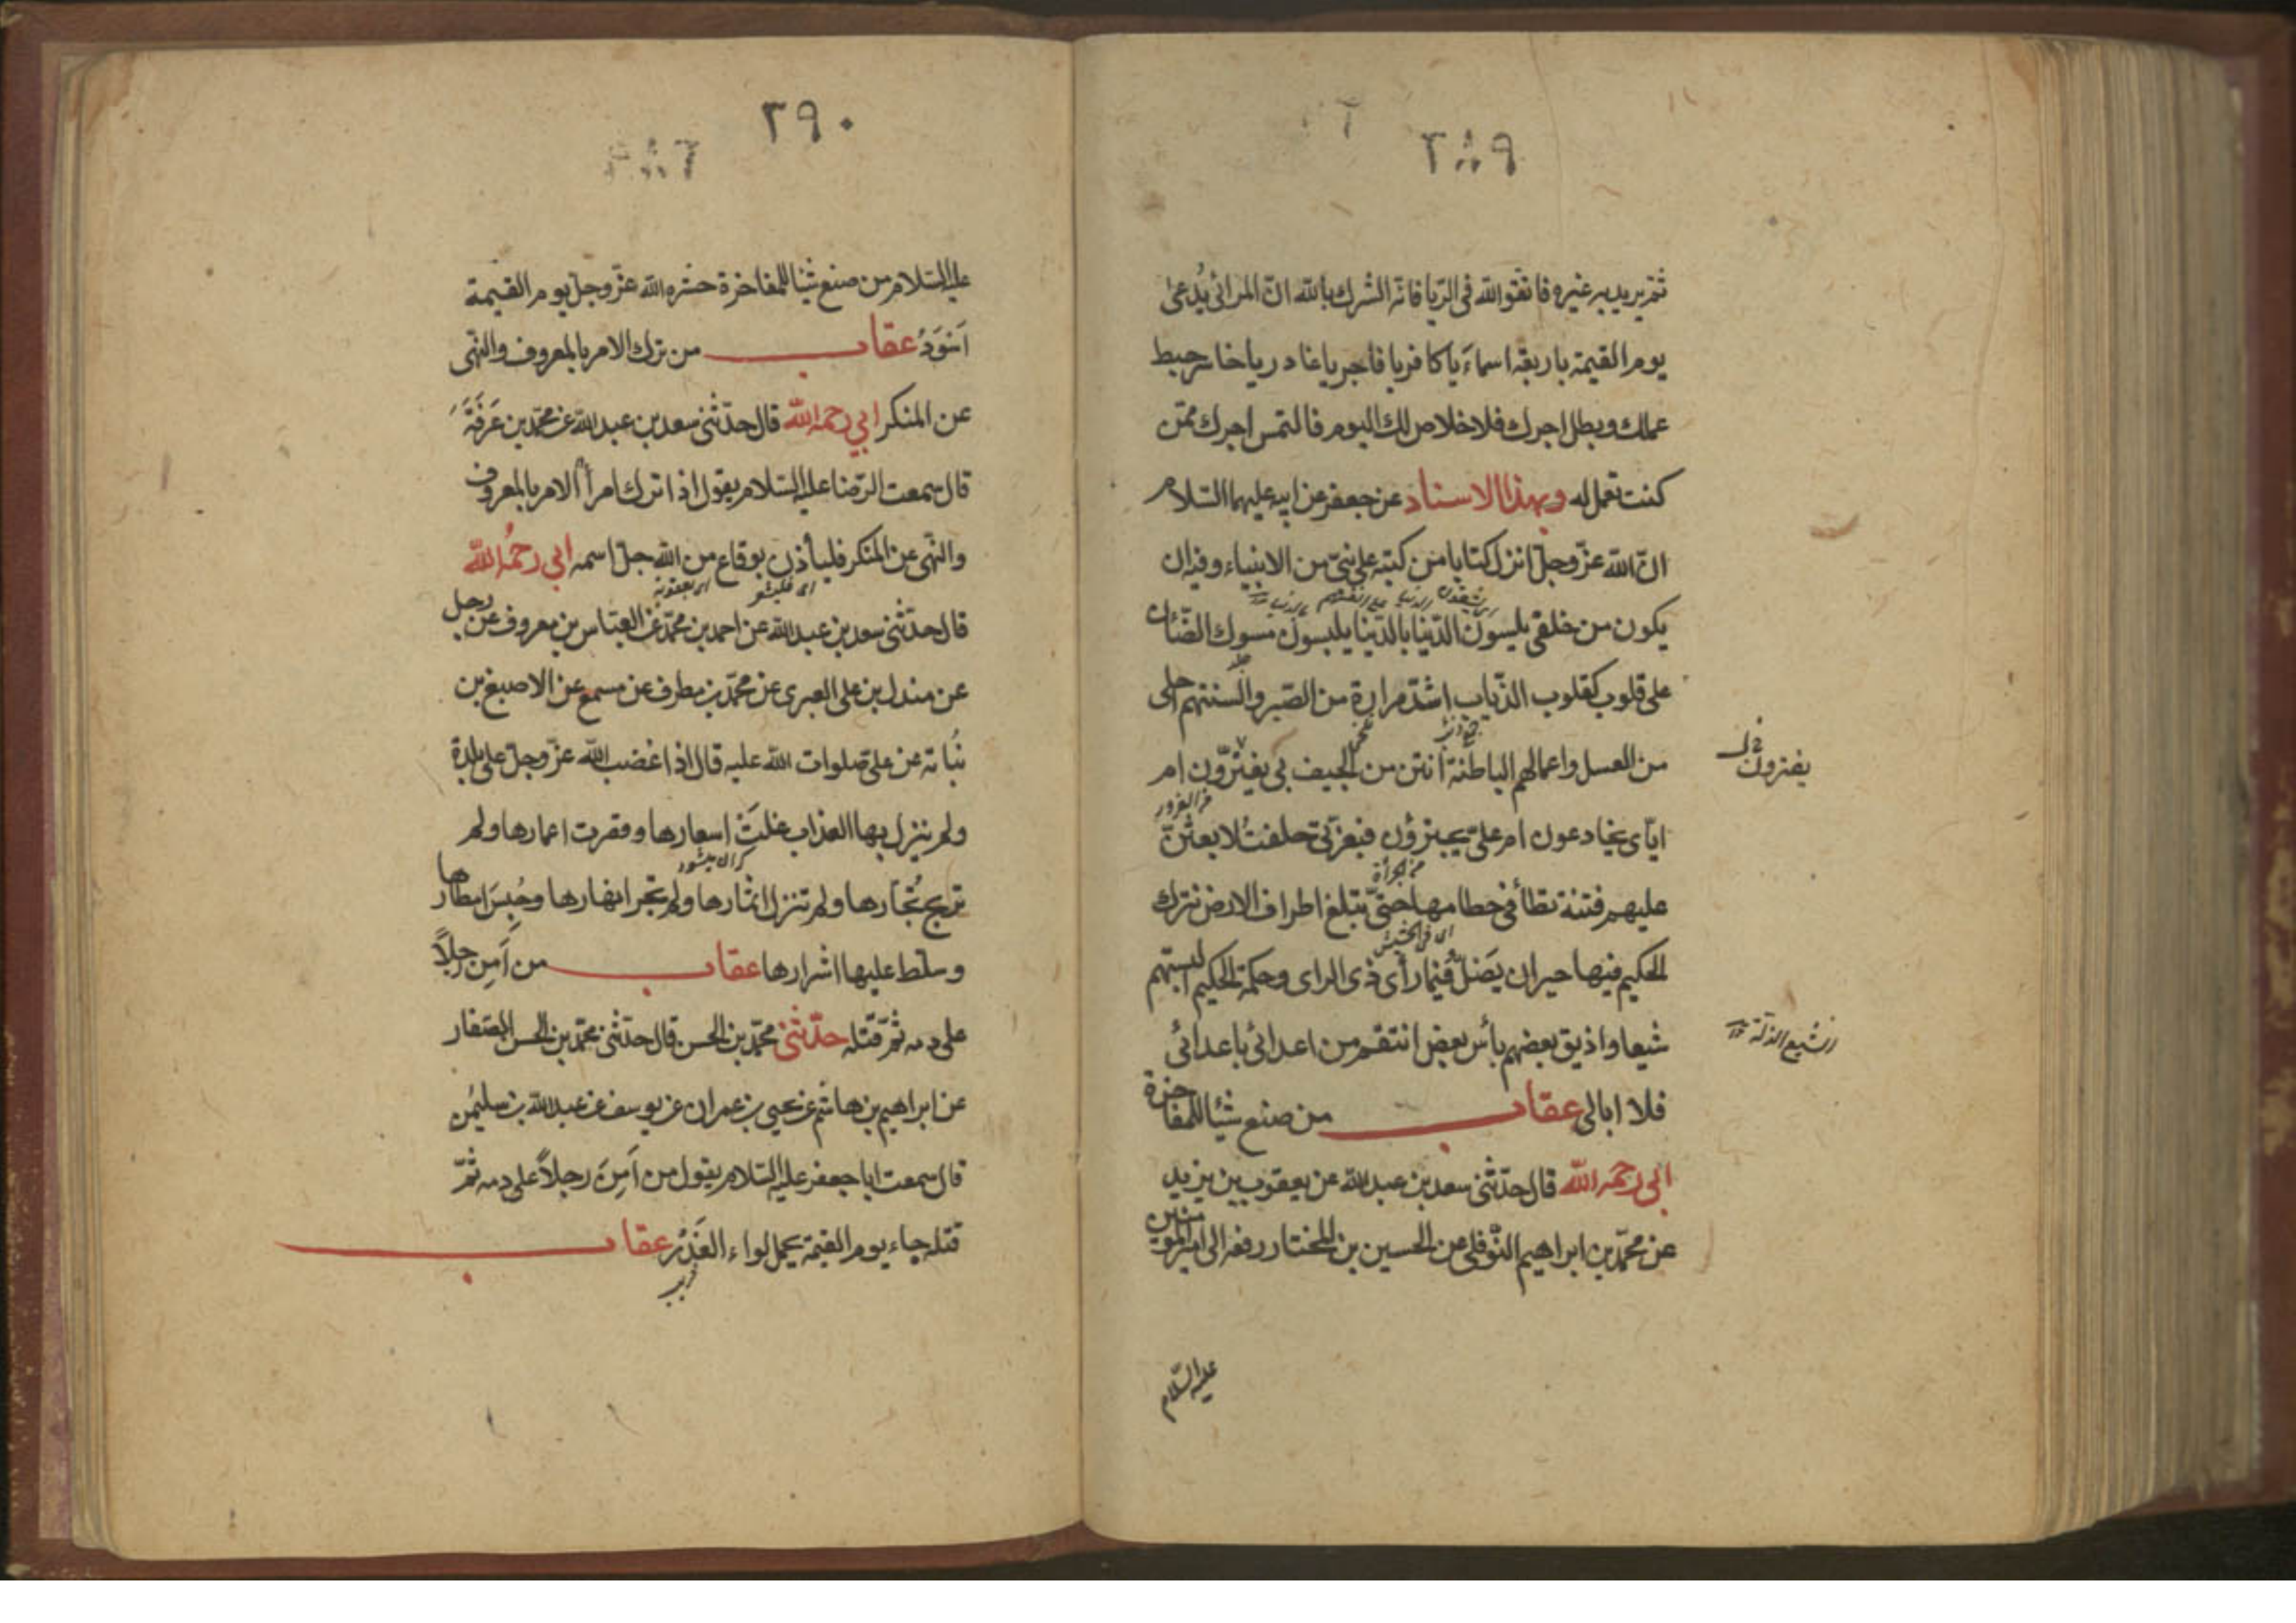 ٢٨٩
ثم يريد به غيره فاتقوا الله في الريا فانه الشرك بالله ان المرائي يُدعى
يوم القيمة باربعة اسماءَ يا كافر يا فاجر يا غادر يا خاسر حبط
عملك وبطل اجرك فلا خلاص لك اليوم فالتمس اجرك ممّن
كنت تعمل له وبهذا الاسناد عن جعفر عن ابيه عليهما السّلام
انّ الله عزّ وجلّ انزل كتابا من كتبه على نبيّ من الانبياء وفيه ان
يكون من خلقي يلبسون الدّنيا بالدّنيا يلبسون مسوك الضّأن
على قلوب كقلوب الذّياب اشدّ مرارة من الصّبر والسنتهم احلى
من العسل واعمالهم الباطنة أنتن من الجيف بي يغترّون ام
يفترون
ايّاى يخادعون ام علىّ يجبرؤن فبعزّتي حلفتُ لابعثنّ
من الغرور
عليهم فتنة تطأ في خطامها حتّى تبلغ اطراف الارض تترك
من الجرأة
الحكيم فيها حيران يَضلّ فيها رأى ذى الراى وحكمة الحكيم البستهم
شيعا واذيق بعضهم بأس بعض انتقم من اعدائي باعدائي
فلا ابالى عقاب من صنع شيئا للمفاخرة
ابي رحمه الله قال حدّثنى سعد بن عبد الله عن يعقوب بن يزيد
عن محمّد بن ابراهيم النّوفلى عن الحسين بن المختار رفعه الى امير المومنين
عليه السّلام
٢٩٠
عليه السّلام من صنع شيئا للمفاخرة حشره الله عزّ وجلّ يوم القيمة
اَسْوَدُ عقاب من ترك الامر بالمعروف والنهى
عن المنكر ابي رحمه الله قال حدّثنى سعد بن عبد الله عن محمّد بن عَرَفَةَ
قال سمعت الرّضا عليه السّلام يقول اذا ترك امرأ الامر بالمعروف
والنّهى عن المنكر فليأذن بوقاع من الله جلّ اسمه ابي رحمُه الله
قال حدّثنى سعد بن عبد الله عن احمد بن محمّد عن العبّاس بن معروف عن رجل
عن مندل بن على العبرى عن محمّد بن مطرف عن مسمع عن الاصبغ بن
نُباته عن علىّ صلوات الله عليه قال اذا غضب الله عزّ وجلّ على بلدة
ولم ينزل بها العذاب غلَتْ اسعارها وقصرت اعمارها ولم
تربح تُجّارها ولم تنزل اثمارها ولم تجر انهارها وحُبِسَ امطارها
وسلط عليها اشرارها عقاب من اَمِنَ رجلاً
على دمه ثمّ قتله حدّثنى محمّد بن الحسن قال حدّثنى محمّد بن الحسن الصّفار
عن ابراهيم بن هاشم عن يحيى بن عمران عن يوسف عن عبد الله بن سليمٰن
قال سمعت ابا جعفر عليه السّلام يقول من اَمِنَ رجلاً على دمه ثمّ
قتله جاء يوم القيمة يحمل لواء الغَدْر عقاب